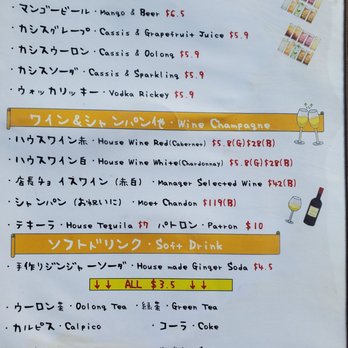 ・マンゴービール・Mango & Beer $6.5
・カシスグレープ・Cassis & Grapefruit Juice $5.9
・カシスウーロン・Cassis & Oolong $5.9
・カシスソーダ・Cassis & Sparkling $5.9
・ウォッカリッキー・Vodka Rickey $5.9
ワイン&シャンパン他・Wine Champagne
・ハウスワイン赤・House Wine Red(Cabernet) $5.8(G)$28(B)
・ハウスワイン白・House Wine White(Chardonnay) $5.8(G)$28(B)
・店長チョイスワイン(赤白)・Manager Selected Wine $42(B)
・シャンパン(お祝いに)・Moet Chandon $119(B)
・テキーラ・House Tequila $7 パトロン・Patron $10
ソフトドリンク・Soft Drink
・手作りジンジャーソーダ・House made Ginger Soda $4.5
↓↓ ALL $3.5 ↓↓
・ウーロン茶・Oolong Tea ・緑茶・Green Tea
・カルピス・Calpico ・コーラ・Coke